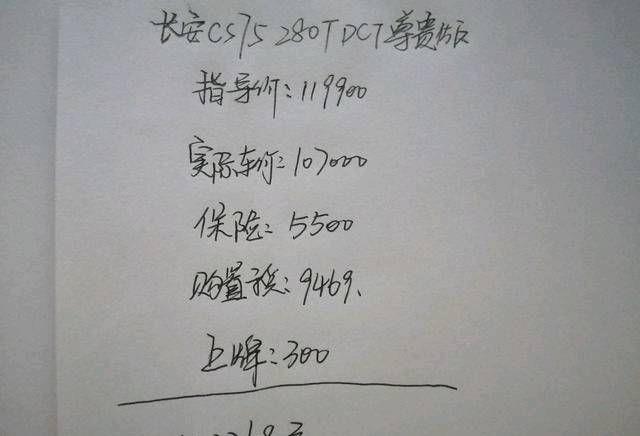 长安CS75 280T DCT尊贵版
指导价：119900
实际车价：107000
保险：5500
购置税：9469.
上牌：300